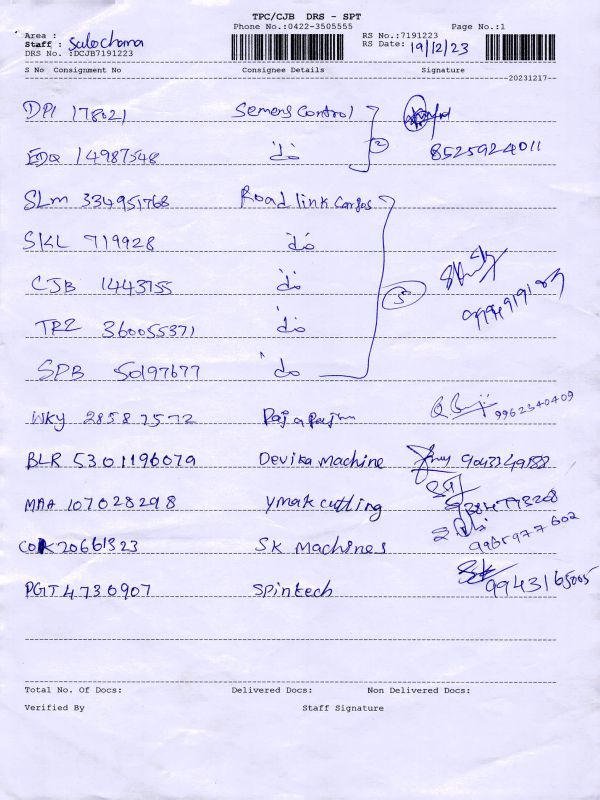 TPC/CJB DRS - SPT
Phone No.:0422-3505555 Page No.:1
Area : RS No.:7191223
Staff : Sulochana RS Date: 19/12/23
DRS No. :DCJB7191223
S No Consignment No Consignee Details Signature
20231217
DPI 178021 Semens Control
EDQ 14987548 do 2 8525924011
SLM 334951768 Road link Cargos
SKL 719928 do
CJB 1443755 do 5
TRZ 360055371 do
SPB 50197677 do
WKY 28587572 9962340409
BLR 5301196079 Devika Machine 9043349188
MAA 107028298 ymak cutting
COK 20661323 SK Machines 9965977602
PGT 4730907 Spintech 9943165005
Total No. Of Docs: Delivered Docs: Non Delivered Docs:
Verified By Staff Signature